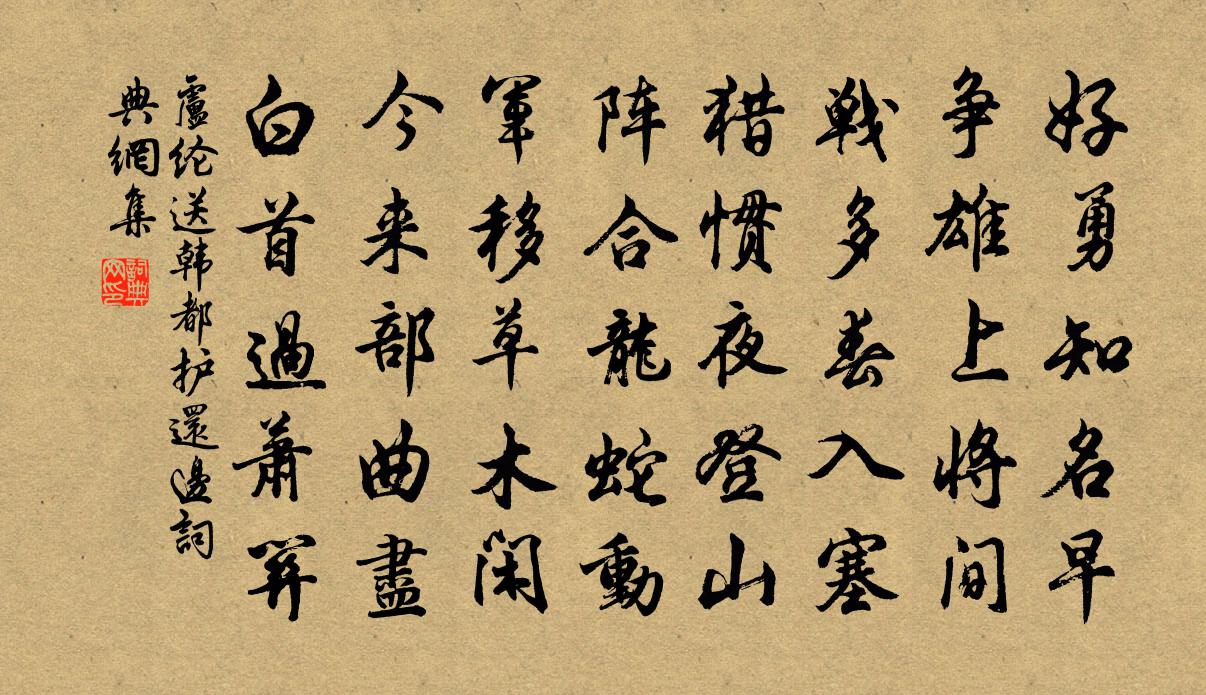 好勇知名早
争雄上將间
戦多春入塞
猎惯夜登山
阵合龍蛇動
軍移草木闲
今来部曲盡
白首過萧關
盧纶送韩都护還邊詞
典網集
詞典
网印